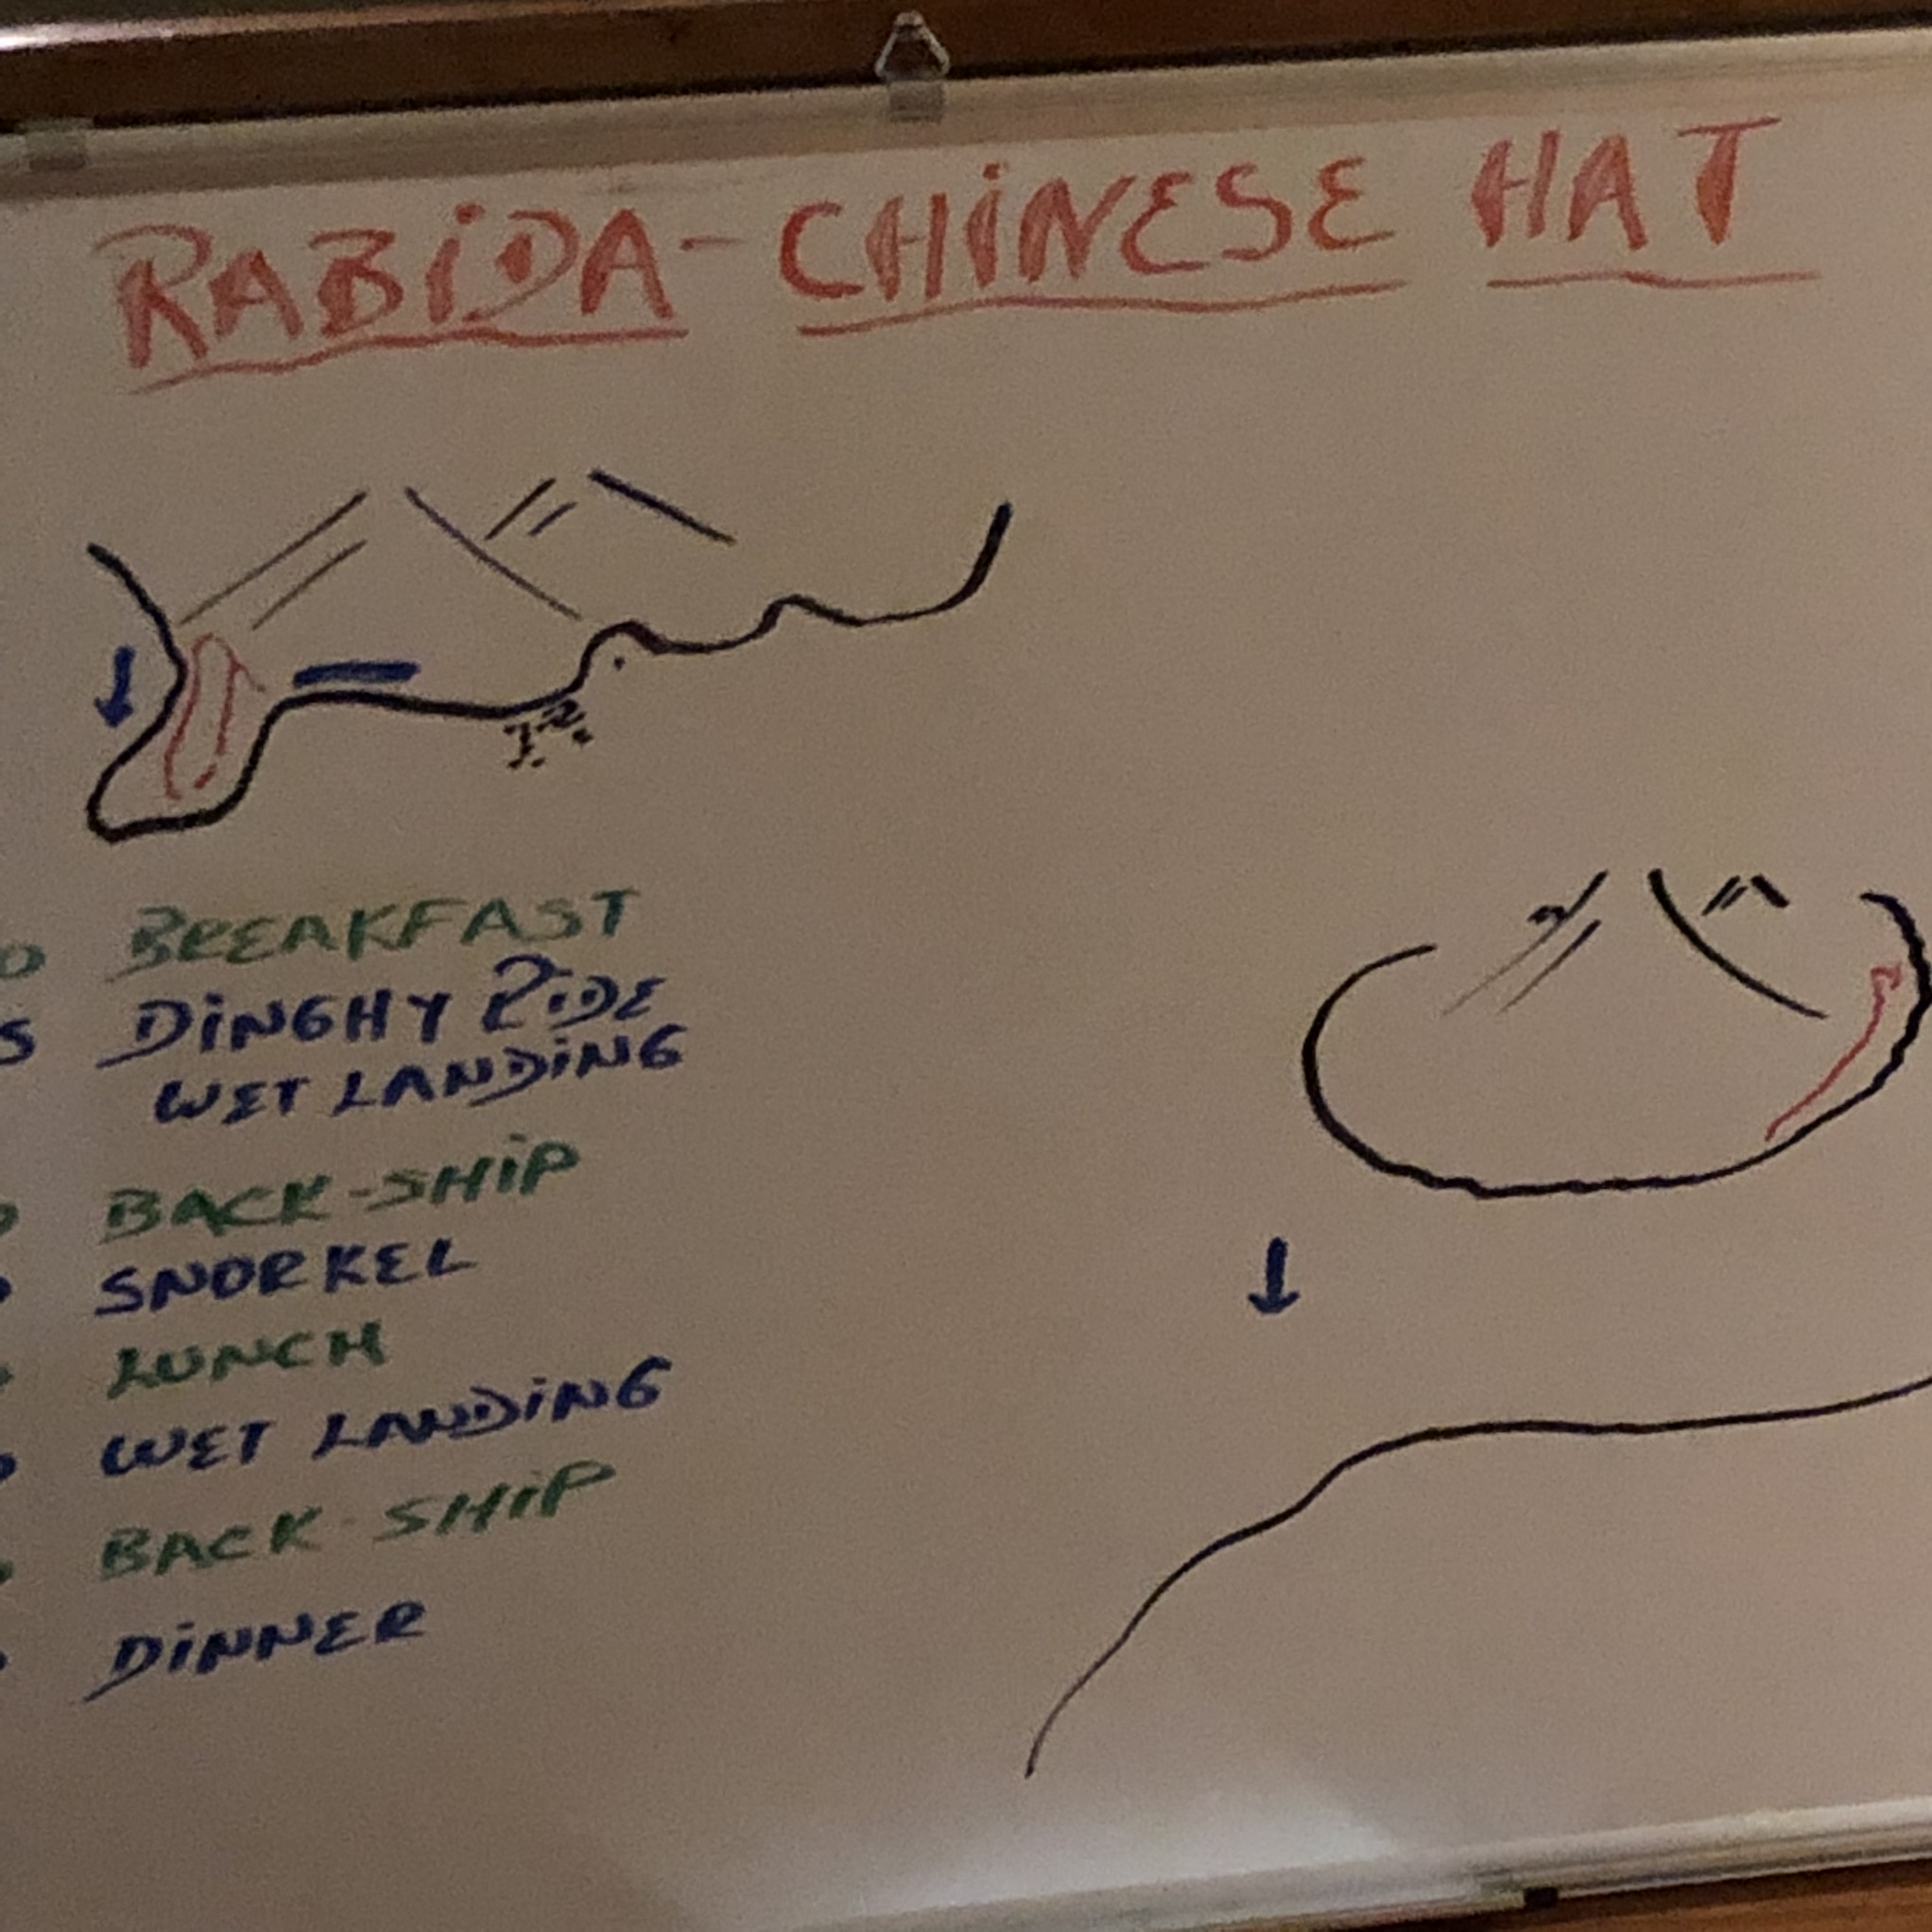 RABiDA-CHiNESE HAT
0 BREAKFAST
5 DiNGHY RiDE
WET LANDiNG
BACK-SHiP
SNORKEL
LUNCH
WET LANDiNG
BACK-SHiP
DiNNER